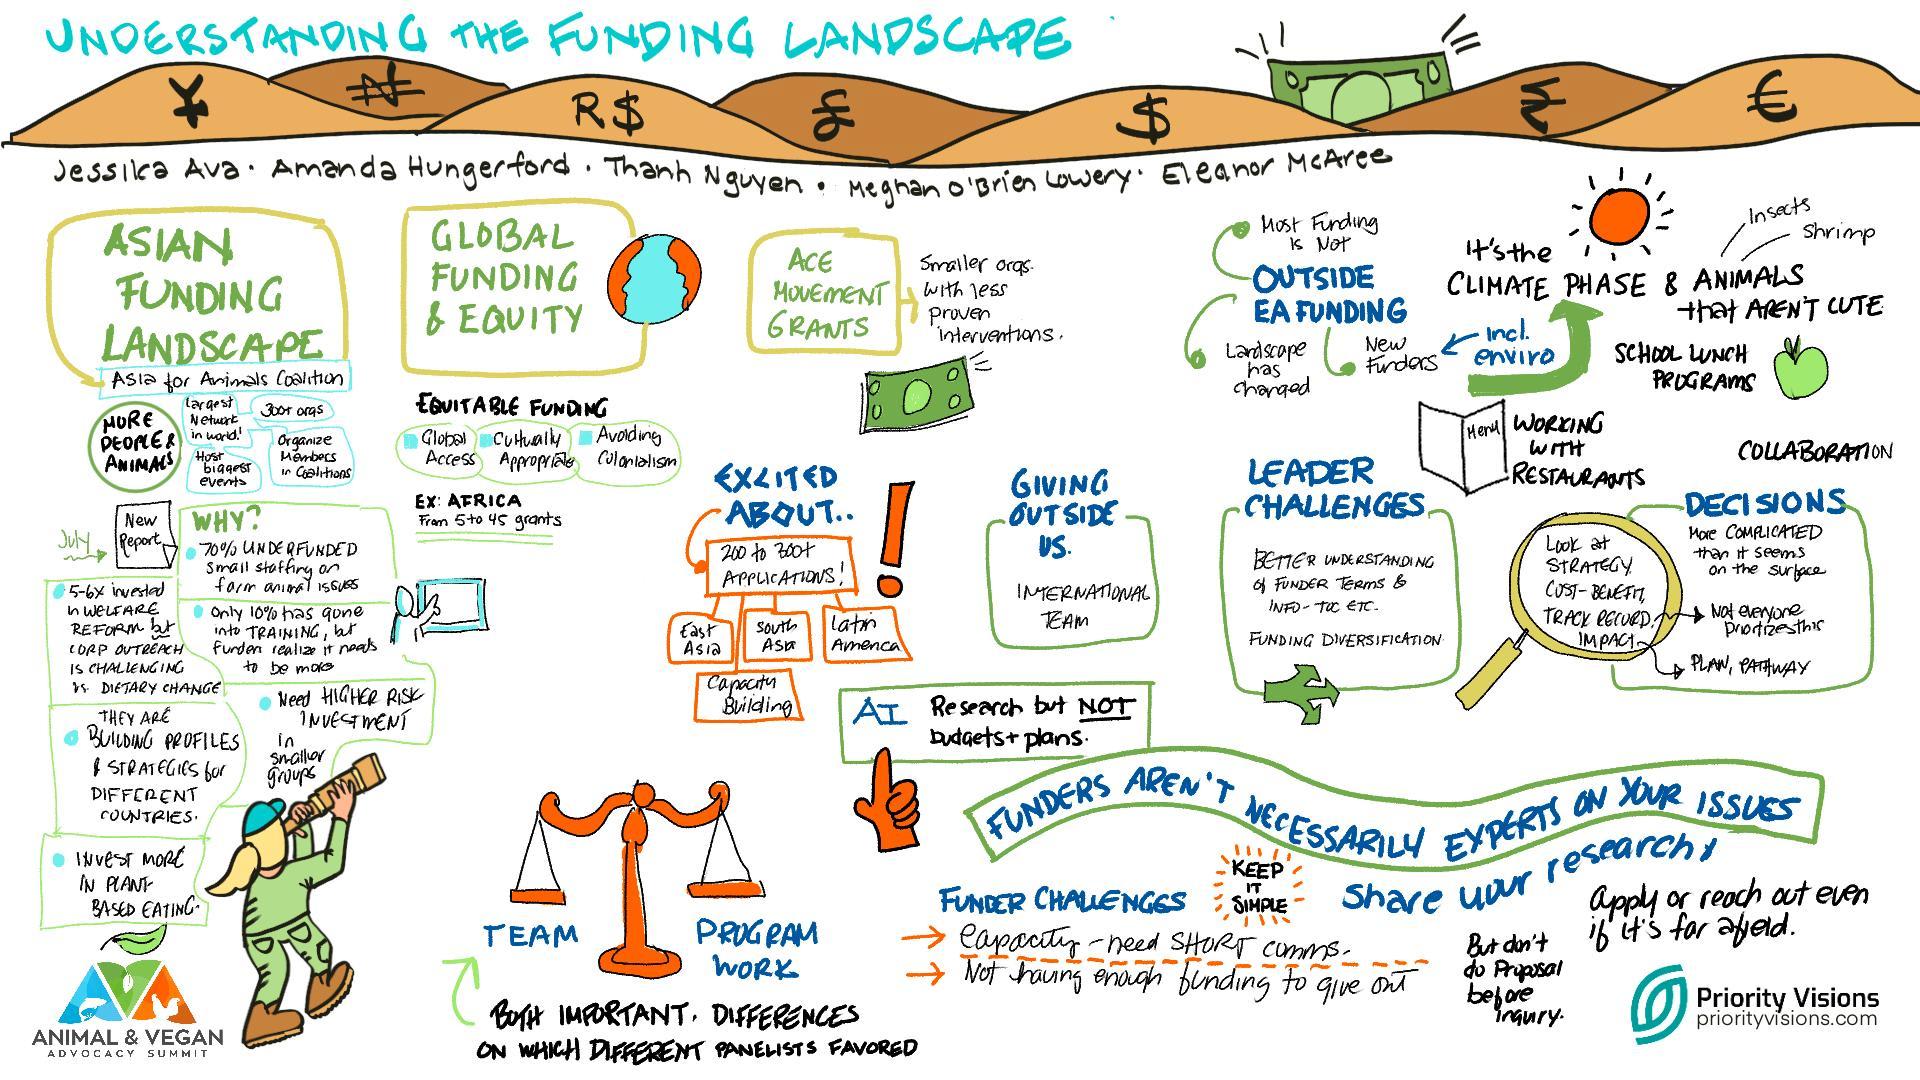 UNDERSTANDING THE FUNDING LANDSCAPE
¥
₦
R$
£
$
₹
€
Jessika Ava · Amanda Hungerford · Thanh Nguyen · Meghan O'Brien Lowery · Eleanor McAree
ASIAN
FUNDING
LANDSCAPE
Asia for Animals Coalition
MORE
PEOPLE &
ANIMALS
Largest
Network
in world!
300+ orgs
Host
biggest
events
Organize
Members
in Coalitions
July
New
Report
WHY?
70% UNDERFUNDED
Small staffing on
farm animal issues
Only 10% has gone
into TRAINING, but
funders realize it needs
to be more
Need HIGHER RISK
INVESTMENT
in
smaller
groups
5-6x invested
in WELFARE
REFORM but
CORP OUTREACH
IS CHALLENGING
vs. DIETARY CHANGE
THEY ARE
BUILDING PROFILES
& STRATEGIES for
DIFFERENT
COUNTRIES.
INVEST MORE
IN PLANT-
BASED EATING.
ANIMAL & VEGAN
ADVOCACY SUMMIT
GLOBAL
FUNDING
& EQUITY
EQUITABLE FUNDING
Global
Access
Culturally
Appropriate
Avoiding
Colonialism
EX: AFRICA
From 5 to 45 grants
ACE
MOVEMENT
GRANTS
Smaller orgs.
with less
proven
interventions.
EXCITED
ABOUT..
200 to 300+
APPLICATIONS!
East
Asia
South
Asia
Latin
America
Capacity
Building
GIVING
OUTSIDE
US.
INTERNATIONAL
TEAM
AI
Research but NOT
budgets + plans.
TEAM
PROGRAM
WORK
BOTH IMPORTANT. DIFFERENCES
ON WHICH DIFFERENT PANELISTS FAVORED
Most Funding
Is Not
OUTSIDE
EA FUNDING
Landscape
has
changed
New
Funders
incl.
enviro
It's the
CLIMATE PHASE & ANIMALS
that AREN'T CUTE
Insects
Shrimp
SCHOOL LUNCH
PROGRAMS
Menu
WORKING
WITH
RESTAURANTS
COLLABORATION
LEADER
CHALLENGES
BETTER UNDERSTANDING
OF FUNDER TERMS &
INFO - TOC ETC.
FUNDING DIVERSIFICATION
DECISIONS
More COMPLICATED
than it seems
on the surface
Look at
STRATEGY,
COST-BENEFIT,
TRACK RECORD,
IMPACT
Not everyone
prioritizes this
PLAN, PATHWAY
FUNDERS AREN'T NECESSARILY EXPERTS ON YOUR ISSUES
Share your research!
KEEP
IT
SIMPLE
FUNDER CHALLENGES
Capacity - need SHORT comms.
Not having enough funding to give out
Apply or reach out even
if it's far afield.
But don't
do Proposal
before
inquiry.
Priority Visions
priorityvisions.com